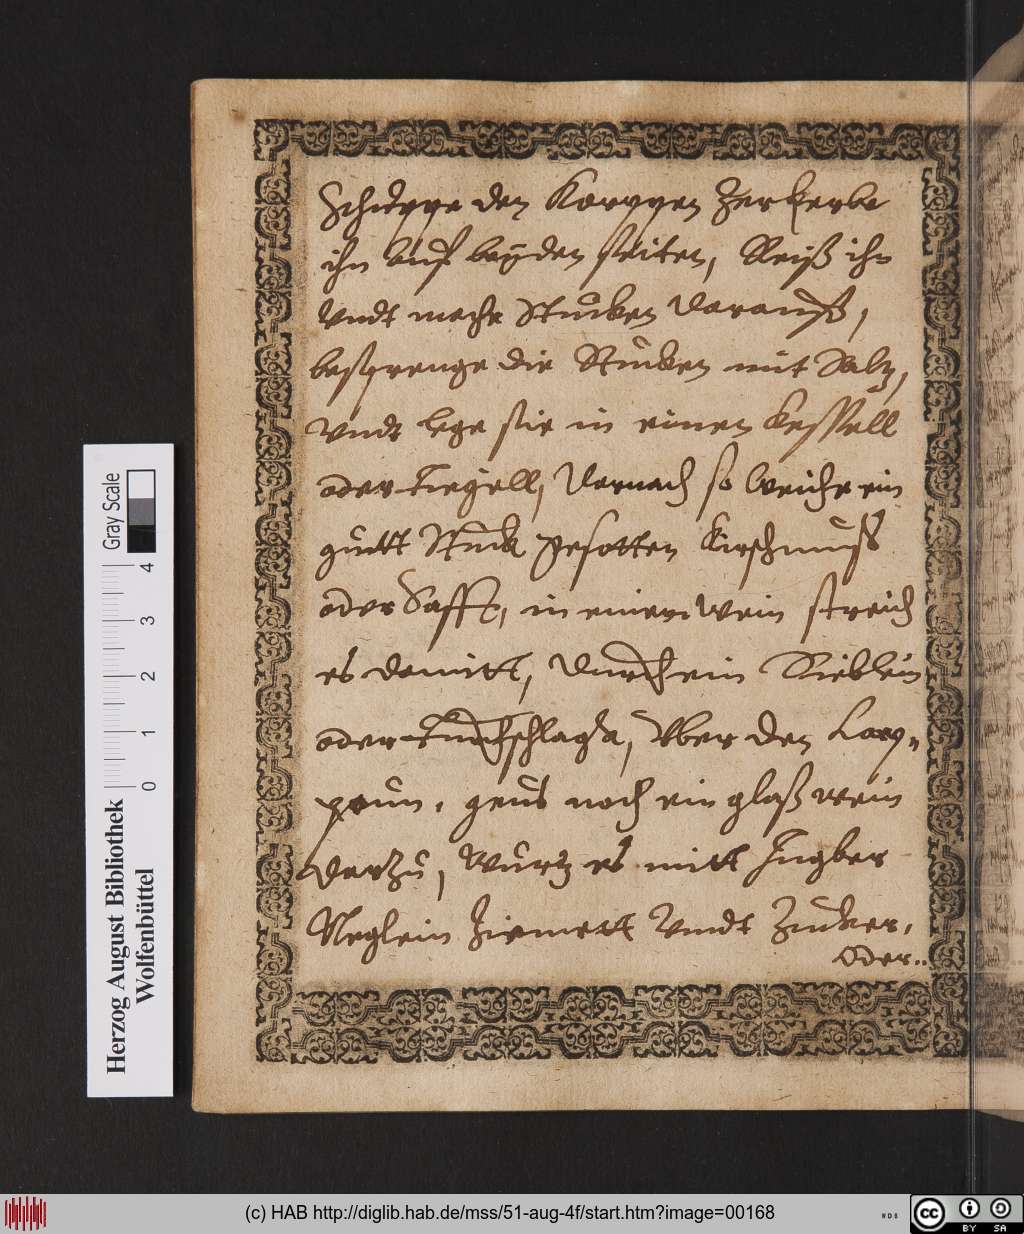 Schuppe den Karppen Zerkerbe
ihn auf beyden seiten, Reiß ihn
Vndt mache Stucken daraus,
besprenge die Stucken mit Saltz,
Vndt lege sie in einen Kessell
oder Tiegell, Darnach so weiche ein
guett Stuck gesotten Kirschmuß
oder Safft, in einen wein streich
es damitt, durch ein Sieblein
oder Durchschlag, Vber den Karp-
geus noch ein glaß wein
darzu, Wurtz es mitt Ingber
Neglein Zimmett Vndt Zucker,
oder..
Gray Scale
4 3 2 1 0
Herzog August Bibliothek
Wolfenbüttel
(c) HAB http://diglib.hab.de/mss/51-aug-4f/start.htm?image=00168
WDB
cc BY SA